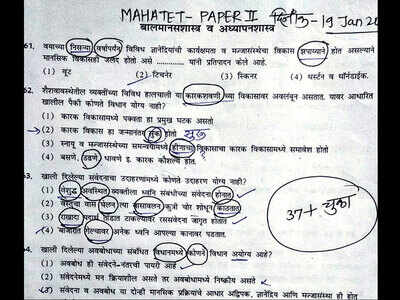 MAHATET- PAPER II दिनांक-19 Jan 20
बालमानसशास्त्र व अध्यापनशास्त्र
61. वयाच्या निसऱ्या वर्षापर्यंत विविध ज्ञानेंद्रियांची कार्यक्षमता व मज्जासंस्थेचा विकास झपाय्याने होत असल्याने
मानसिक विकासही जलद होतो असे यांनी प्रतिपादन केले आहे.
(1) गूट (2) टिचनेर (3) स्किनर (4) थर्स्टन व थॉर्नडाईक.
62. शैशवावस्थेतील व्यक्तींच्या विविध हालचाली या कारकशवणी च्या विकासावर अवलंबून असतात. यावर आधारित
खालील पैकी कोणते विधान योग्य नाही?
(1) कारक विकासामध्ये पक्वता हा प्रमुख घटक असतो
(2) कारक विकास हा जन्मानंतर सुंक होतो सुरू
(3) स्नायू व मज्जासंस्थेच्या समन्वयामध्ये होणाचा विकासाचा कारक विकासामध्ये समावेश होतो
(4) बसणे, हढणे धावणे इ. कारक कौशल्ये होत.
63. खाली दिलेल्या संवेदनाच्या उदाहरणांमध्ये कोणते उदाहरण योग्य नाही?
(1) अवस्थित व्यक्तीला ध्वनि संबंधीच्या संवेदना होनात
(2) वस्तूचा वास घेलन त्या वासावलन कुत्रे चोर शोधून काठतात
(3) पदार्थ तोंडात टाकल्यावर रससंवेदना जागृत होतात
(4) बाजारात गेल्यावर अनेक ध्वनि आपल्या कानावर पडतात.
37+ चुका
64. खाली दिलेल्या अवबोधाच्या संबंधित विधानमध्ये कोणने विधान अयोग्य आहे?
(1) अवबोध ही संवेदने-नंतरची पायरी आहे
(2) संवेदनेमध्ये मन क्रियाशील असते तर अवबोधामध्ये निष्क्रीय असते
(3) संवेदना व अवबोध या दोन्ही मानसिक प्रक्रियांचे आधार अद्विपक, ज्ञानेंद्रिय आणि मज्जासंस्था ही होत